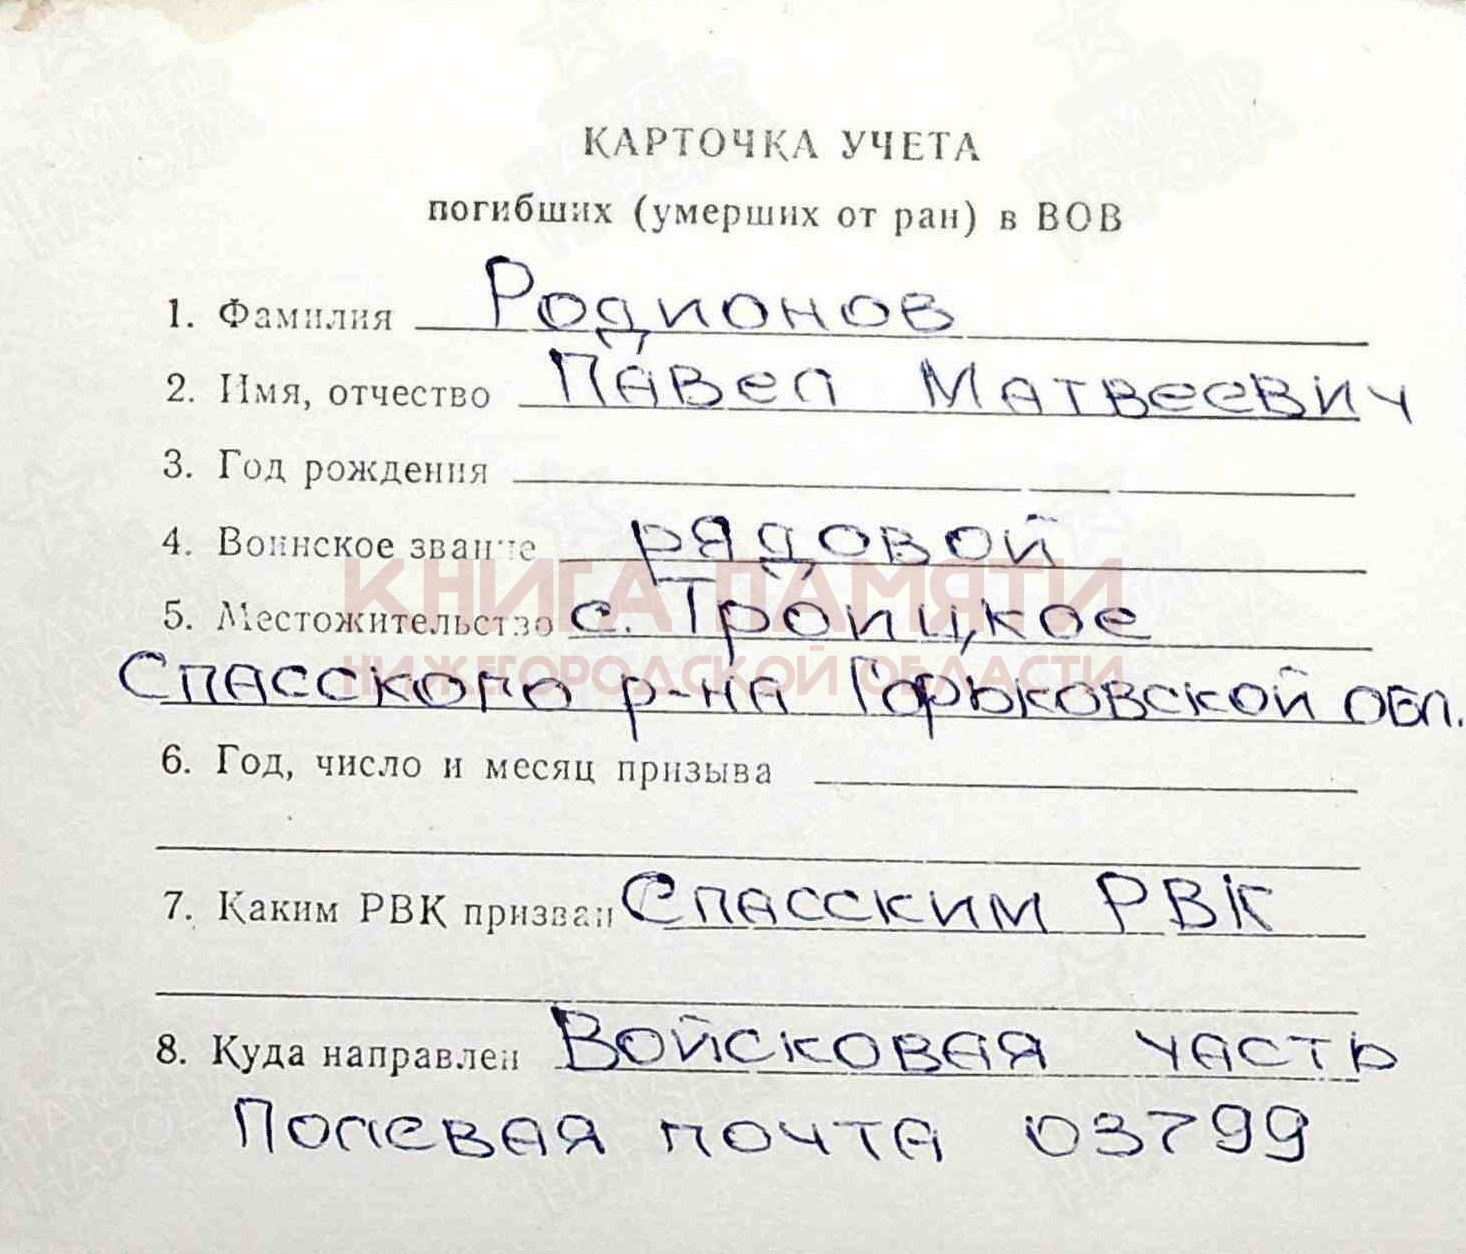 КАРТОЧКА УЧЕТА
погибших (умерших от ран) в ВОВ
1. Фамилия Родионов
2. Имя, отчество Павел Матвеевич
3. Год рождения
4. Воинское звание рядовой
5. Местожительство с. Троицкое
Спасского р-на Горьковской обл.
КНИГА ПАМЯТИ
НИЖЕГОРОДСКОЙ ОБЛАСТИ
6. Год, число и месяц призыва
7. Каким РВК призван Спасским РВК
8. Куда направлен Войсковая часть
Полевая почта 03799